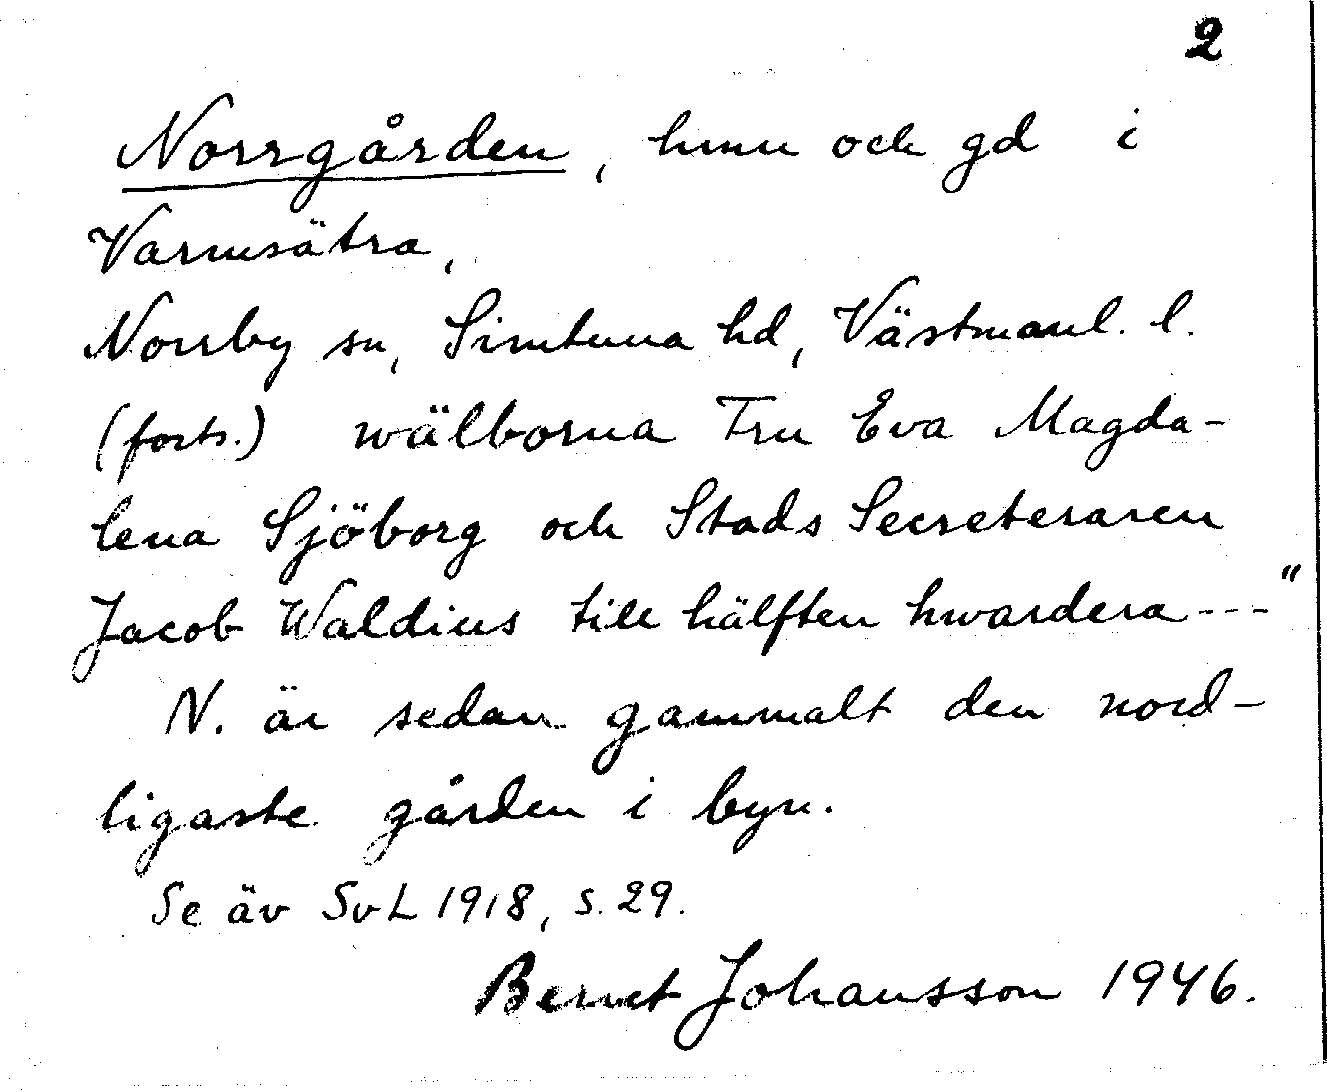 2
Norrgården, hmn och gd i
Varmsätra,
Norrby sn, Simtuna hd, Västmanl. l.
(forts.) wälborna Fru Eva Magda-
lena Sjöborg och Stads Secreteraren
Jacob Waldius till hälften hwardera---"
N. är sedan gammalt den nord-
ligaste gården i byn.
Se äv SvL 1918, s. 29.
Bernt Johansson 1946.